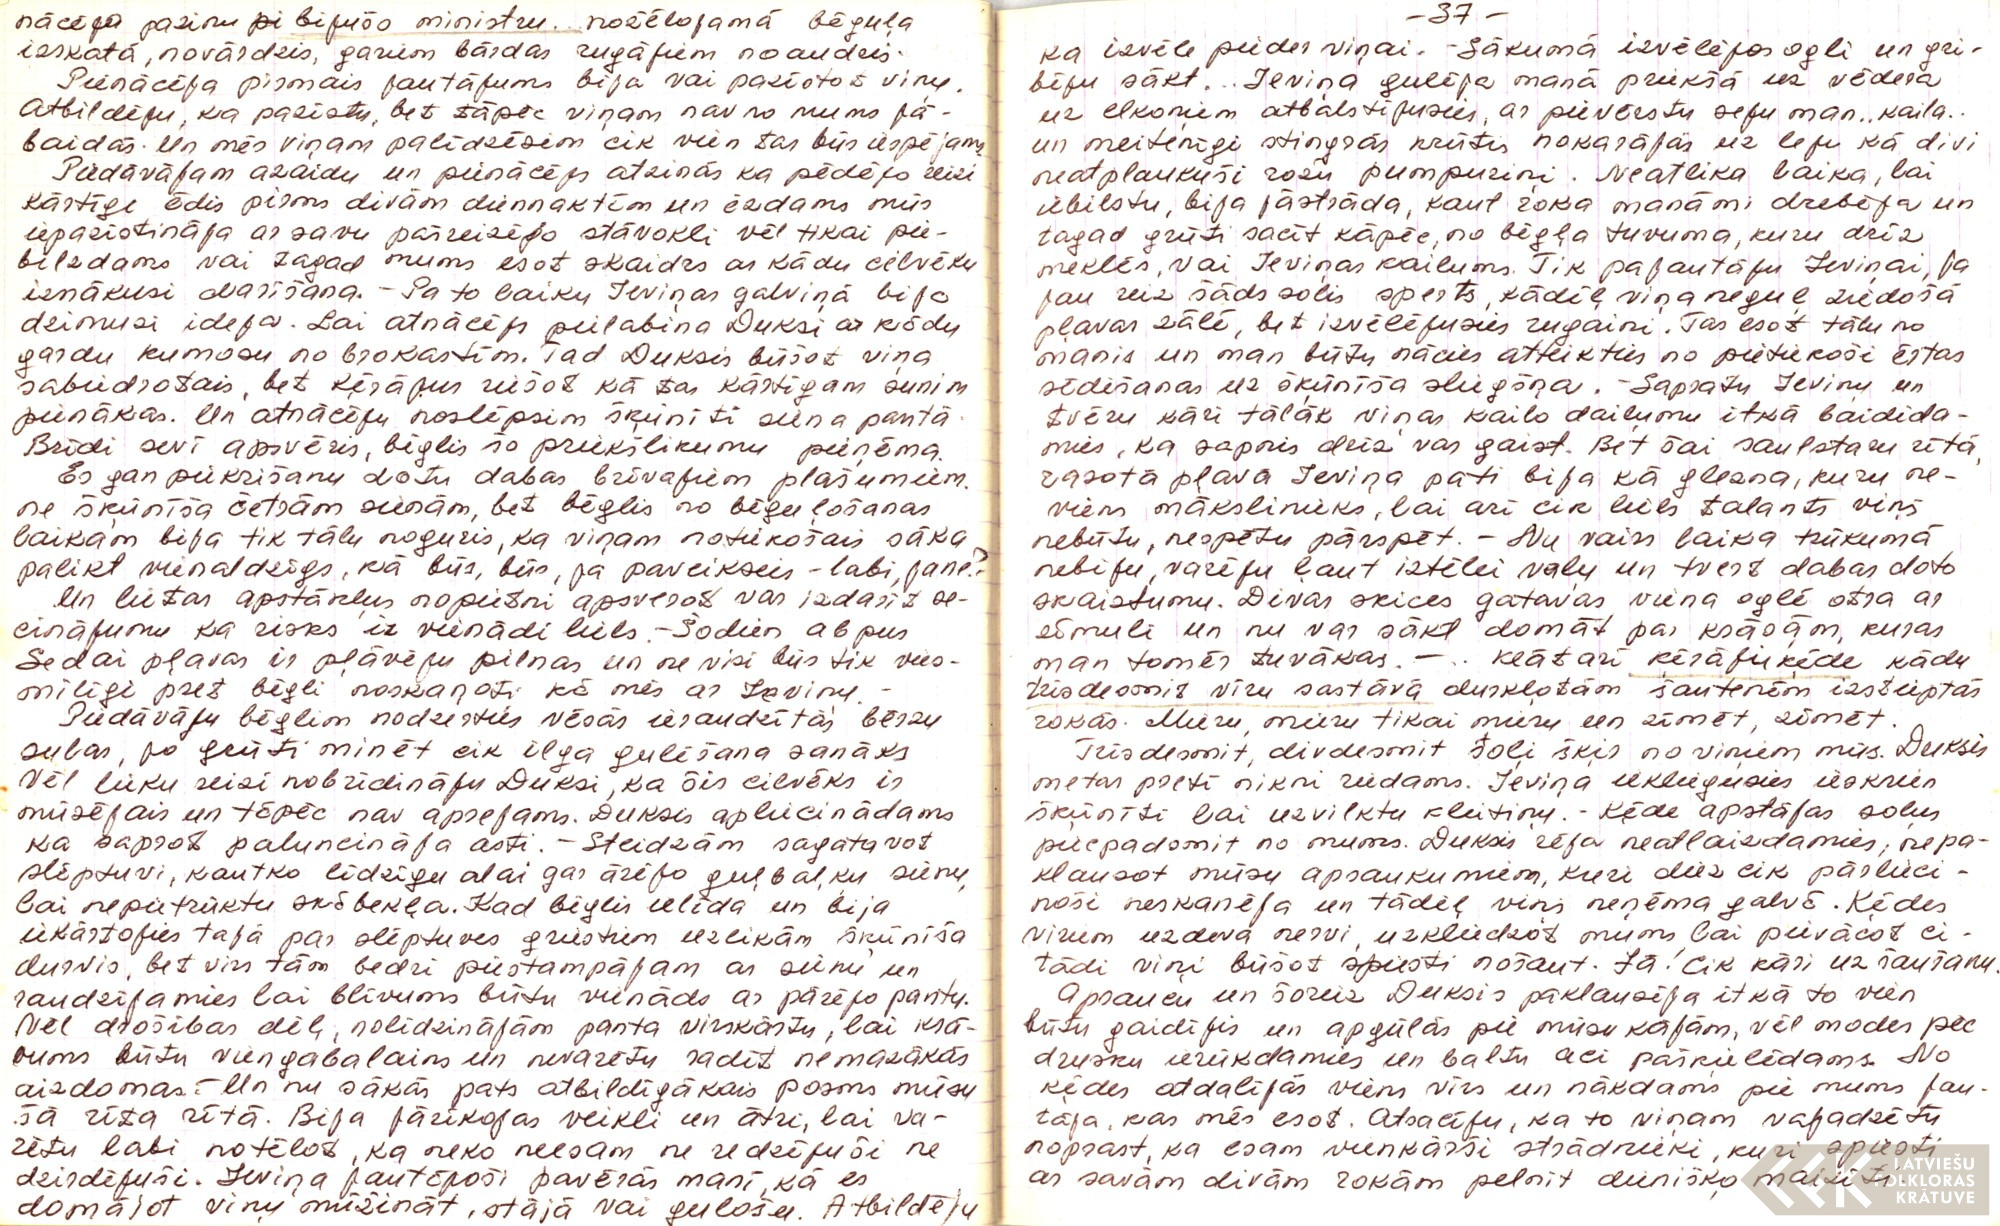 nācēju pazinu bijušo ministru.. nožēlojamā bēguļa
izskatā, novārdzis, gariem bārdas rugājiem noaudzis.
Pienācēja pirmais jautājums bija vai pazīstot viņu.
Atbildēju, ka pazīstu, bet tāpēc viņam nav no mums jā-
baidās. Un mēs viņam palīdzēsim cik vien tas būs iespējams
Piedāvājam azaidu un pienācējs atzinās ka pēdējo reizi
kārtīgi ēdis pirms divām diennaktīm un ēzdams mūs
iepazīstināja ar savu pašreizējo stāvokli vēl tikai pie-
bilzdams vai tagad mums esot skaidrs ar kādu cilvēku
iznākusi darīšana. - Pa to laiku Ieviņas galviņā bija
dzimusi ideja. Lai atnācējs pielabina Duksi ar kādu
gardu kumosu no brokastīm. Tad Duksis būšot viņa
sabiedrotais, bet ķērājus riešot kā tas kārtīgam sunim
pienākas. Un atnācēju noslēpsim šķūnītī siena pantā.
Brīdi sevī apsvēris, bēglis šo priekšlikumu pieņēma.
Es gan piekrišanu dotu dabas brīvajiem plašumiem.
ne šķūnīša četrām sienām, bet bēglis no bēguļošanas
laikam bija tik tālu noguris, ka viņam notiekošais sāka
palikt vienaldzīgs, kā būs, būs, ja paveiksies - labi, ja ne?
Un lietas apstākļus nopietni apsverot var izdarīt se-
cinājumu ka risks ir vienādi liels. - Šodien abpus
Sedai pļavas ir pļāvēju pilnas un ne visi būs tik vies-
mīlīgi pret bēgli noskaņoti kā mēs ar Ieviņu. -
Piedāvāju bēglim nodzerties vēsās ieraudzētās bērzu
sulas, jo grūti minēt cik ilga gulēšana sanāks
Vēl lieku reizi nobrīdināju Duksi, ka šis cilvēks ir
mūsējais un tāpēc nav aprejams. Duksis apliecinādams
ka saprot paluncināja asti. - Steidzām sagatavot
slēptuvi, kautko līdzīgu alai gar ārējo guļbaļķu sienu,
lai nepietrūktu skābekļa. Kad bēglis ielīda un bija
iekārtojies tajā par slēptuves griestiem uzlikām šķūnīša
durvis, bet virs tām bedri piestampājam ar sienu un
raudzījamies lai blīvums būtu vienāds ar pārējo pantu.
Vēl drošības dēļ, nolīdzinājām panta virskārtu, lai krā-
vums būtu viengabalains un nevarētu radīt nemazākās
aizdomas. - Un nu sākās pats atbildīgākais posms mūsu
šā rīta rītā. Bija jārīkojas veikli un ātri, lai va-
rētu labi notēlot, ka neko neesam ne redzējuši ne
dzirdējuši. Ieviņa jautājoši pavērās manī, kā es
domājot viņu mūžināt, stājā vai guļošu. Atbildēju
- 37 -
ka izvēle pieder viņai. - Sākumā izvēlējos ogli un gri-
bēju sākt... Ieviņa gulēja manā priekšā uz vēdera
uz elkoņiem atbalstījusies, ar pievērstu seju man.. kaila..
un meitenīgi stingrās krūtis nokarājās uz leju kā divi
neatplaukuši rožu pumpuriņi. Neatlika laika, lai
iebilstu, bija jāstrādā, kaut roka manāmi drebēja un
tagad grūti sacīt kāpēc, no bēgļa tuvuma, kuru drīz
meklēs, vai Ieviņas kailums. Tik pajautāju Ieviņai, ja
jau reiz šāds solis sperts, kādēļ viņa neguļ ziedošā
pļavas zālē, bet izvēlējusies rugaini. Tas esot tālu no
manis un man būtu nācies atteikties no pietiekoši ērtas
sēdēšanas uz šķūnīša sliegšņa. - Sapratu Ieviņu un
tvēru kāri tālāk viņas kailo daiļumu itkā baidīda-
mies, ka sapnis drīz var gaist. Bet šai saulstaru rītā,
rasotā pļavā Ieviņa pati bija kā glezna, kuru ne-
viens mākslinieks, lai arī cik liels talants viņš
nebūtu, nespētu pārspēt. - Nu vairs laika trūkumā
nebiju, varēju ļaut iztēlei vaļu un tvert dabas doto
skaistumu. Divas skices gatavas viena oglē otra ar
zīmuli un nu var sākt domāt par krāsām, kuras
man tomēr tuvākas. - .. klāt arī ķērājuķēde kādu
trīsdesmit vīru sastāvā durkļotām šautenēm izstieptās
rokās. Mieru, mieru tikai mieru un zīmēt, zīmēt.
Trīsdesmit, divdesmit soļi šķir no viņiem mūs. Duksis
metas pretī nikni riedams. Ieviņa iekliegusies ieskrien
šķūnītī lai uzvilktu kleitiņu. - Ķēde apstājas soļus
piecpadsmit no mums. Duksis rēja neatlaizdamies, nepa-
klausot mūsu apsaukumiem, kuri diez cik pārlieci-
noši neskanēja un tādēļ viņš neņēma galvā. Ķēdes
vīriem uzdeva nervi, uzkliedzot mums lai pievācot ci-
tādi viņi būšot spiesti nošaut. Jā! Cik kāri uz šaušanu.
Apsaucu un šoreiz Duksis paklausīja itkā to vien
būtu gaidījis un apgūlās pie mūsu kājām, vēl modes pēc
drusku ierūkdamies un baltu aci pāškielēdams. No
ķēdes atdalījās viens vīrs un nākdams pie mums jau-
tāja, kas mēs esot. Atsacīju, ka to viņam vajadzētu
noprast, ka esam vienkārši strādnieki, kuri spiesti
ar savām divām rokām pelnīt dienišķo maizīti
LATVIEŠU
FOLKLORAS
KRĀTUVE